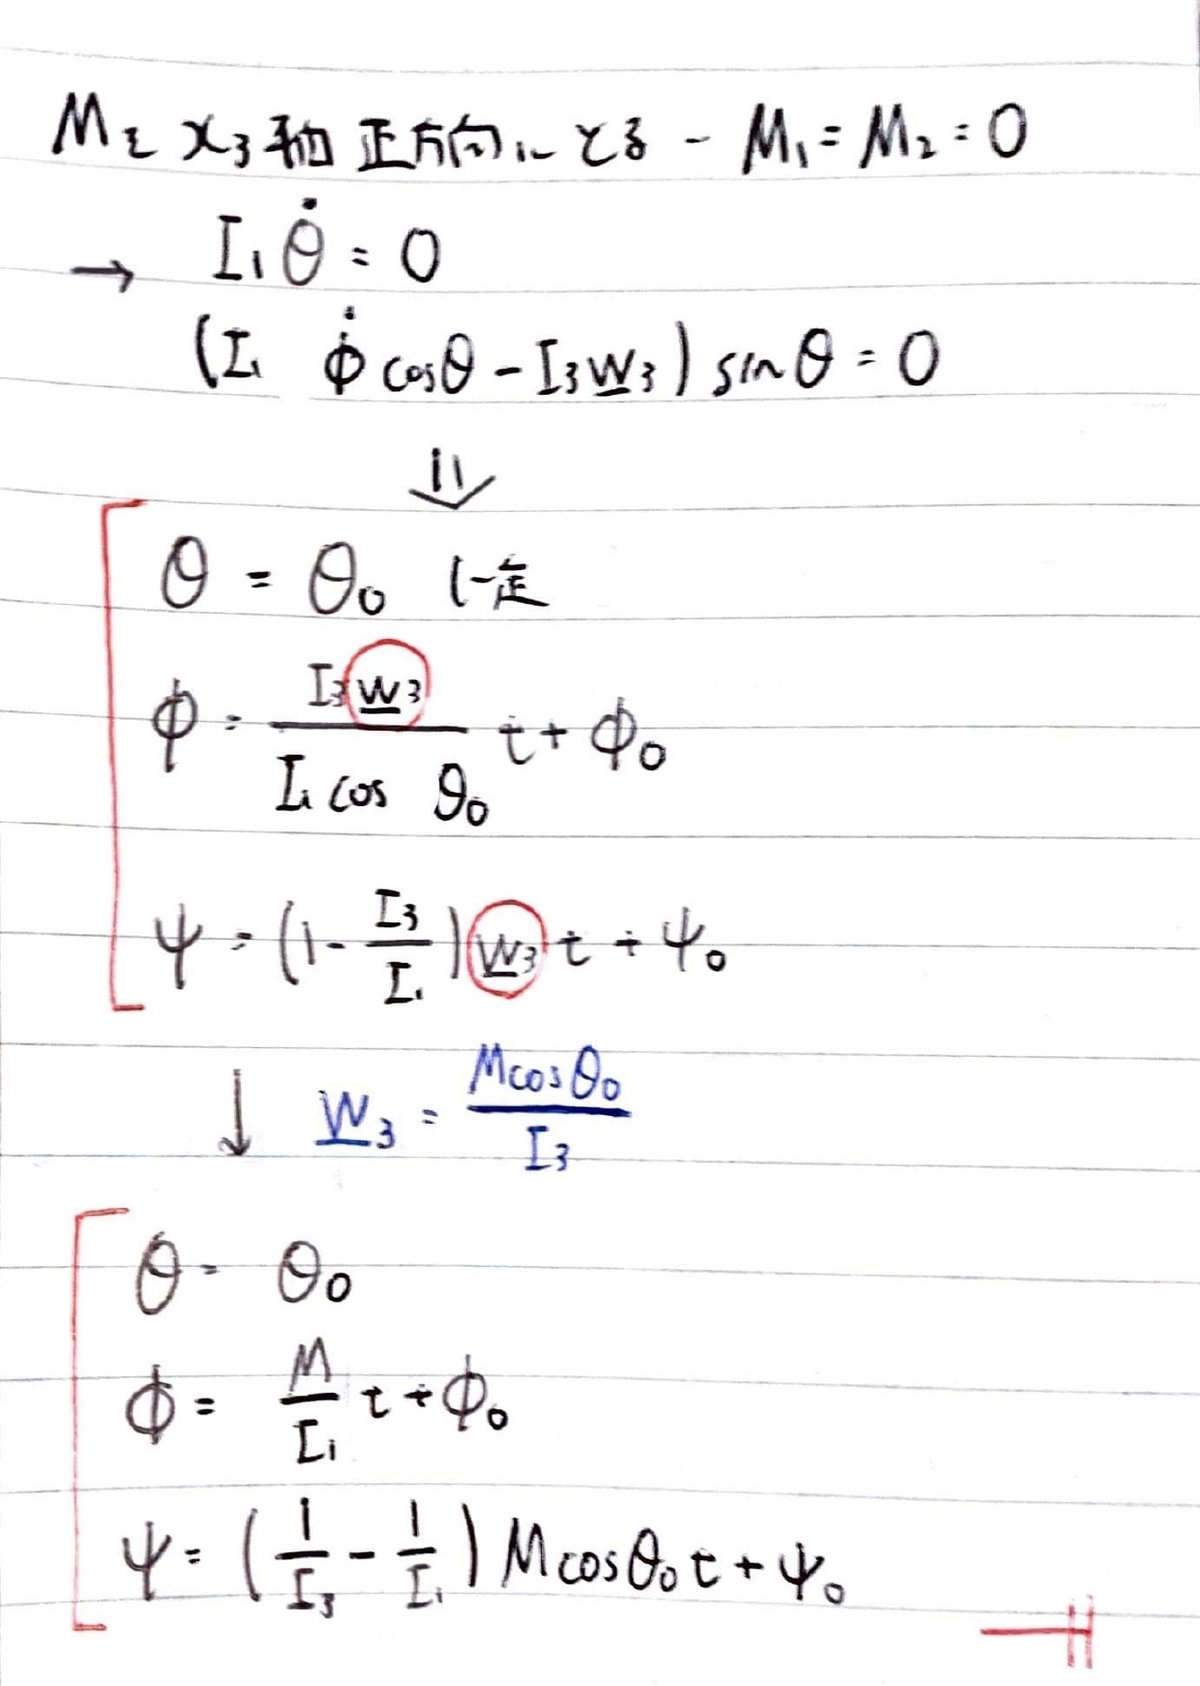 Mを x₃軸 正方向にとる - M₁ = M₂ = 0
→ I₁ θ̇ = 0
(I₁ φ̇ cosθ - I₃w̲₃) sinθ = 0
⇓
θ = θ₀ (一定
φ = I₃w̲₃ / I₁ cos θ₀ t + φ₀
ψ = (1 - I₃/I₁) w̲₃ t + ψ₀
↓ w̲₃ = Mcosθ₀ / I₃
θ = θ₀
φ = M/I₁ t + φ₀
ψ = (1/I₃ - 1/I₁) M cosθ₀ t + ψ₀